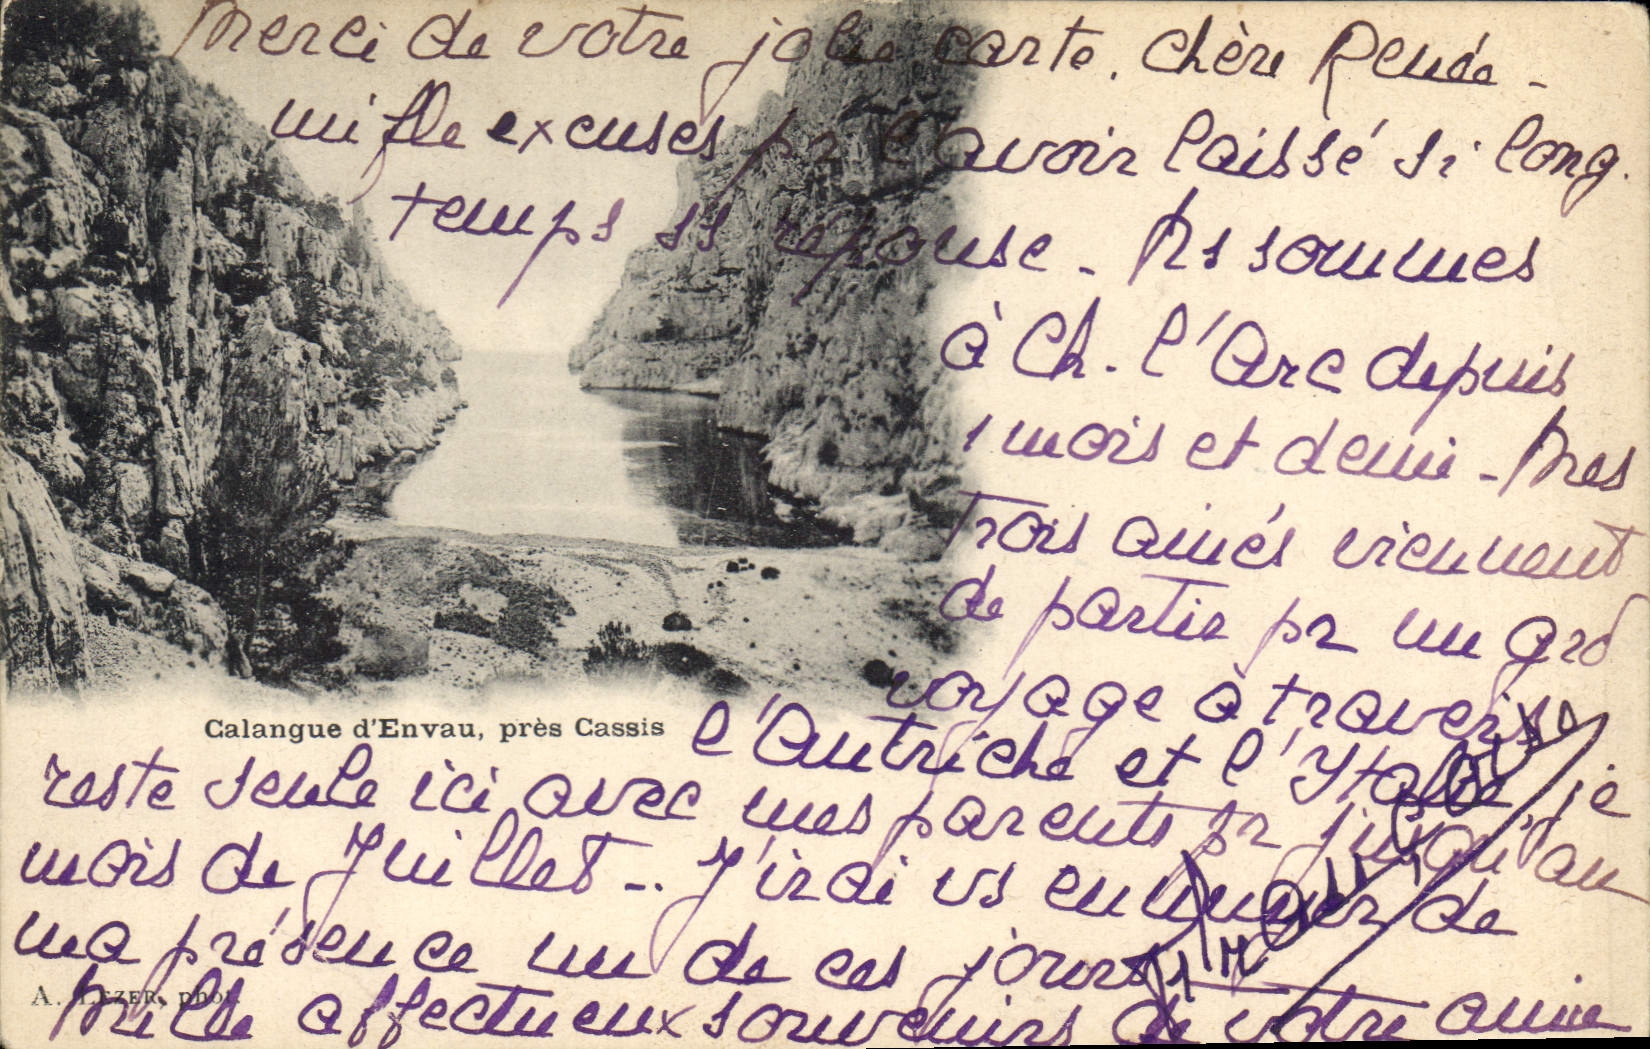 Merci de votre jolie carte, chère Renée -
mille excuses pr l'avoir laissé si long.
temps ss reponse - Ns sommes
à Ch. l'Arc depuis
1 mois et demi - Mes
trois ainés viennent
de partir pr un grd
voyage à travers
l'Autriche et l'Italie, je
reste seule ici avec mes parents pr jusqu'au
mois de Juillet... J'irai vs ennuyer de
ma présence un de ces jours
Mille affectueux souvenirs de votre amie
Calangue d'Envau, près Cassis
A. LEZER, phot.